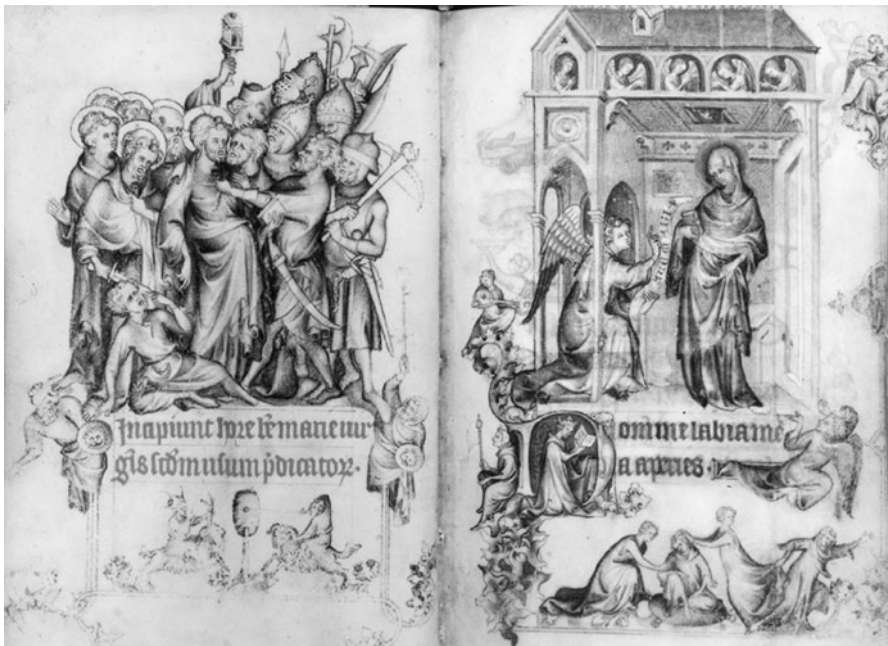 Incipiunt hore bẽ marie uir
gĩs scdm usum p̃dicatoꝝ.
Domine labia me
a aperies.